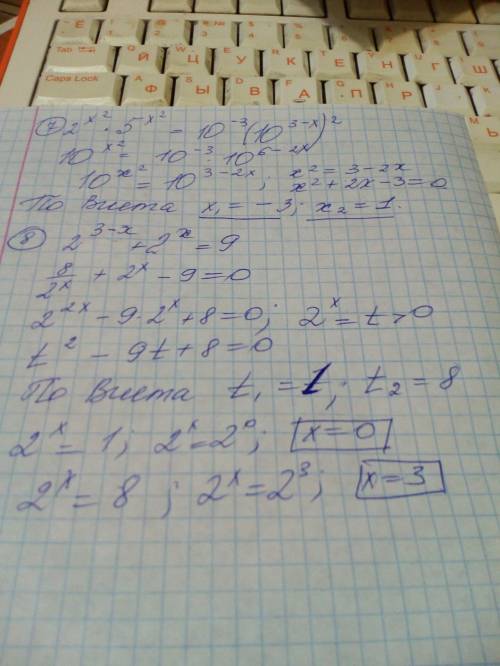 Tab
Й Ц У К Е Н Г Ш
Caps Lock
Ф Ы В А П Р
⑦ 2^{x^2} · 5^{x^2} = 10^{-3}(10^{3-x})^2
10^{x^2} = 10^{-3} · 10^{6-2x}
10^{x^2} = 10^{3-2x}; x^2 = 3-2x
x^2+2x-3=0
По Виета x_1 = -3; x_2 = 1.
⑧ 2^{3-x} + 2^x = 9
8/2^x + 2^x - 9 = 0
2^{2x} - 9·2^x + 8 = 0; 2^x = t > 0
t^2 - 9t + 8 = 0
По Виета t_1 = 1; t_2 = 8
2^x = 1; 2^x = 2^0; x = 0
2^x = 8; 2^x = 2^3; x = 3